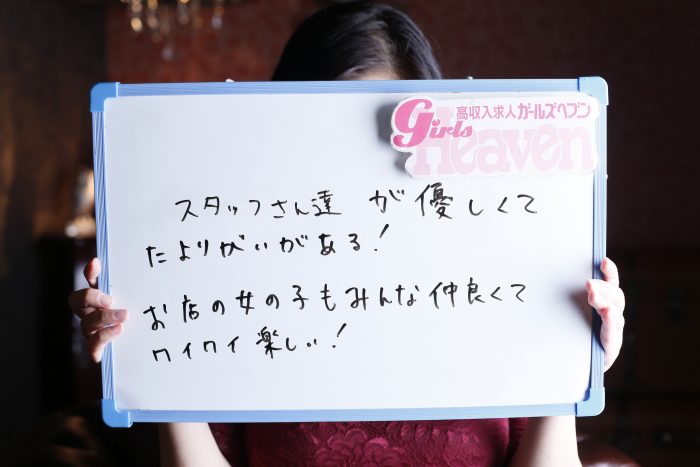 高収入求人 ガールズヘブン
Girls Heaven
スタッフさん達 が優しくて
たよりがいがある!
お店の女の子もみんな仲良くて
ワイワイ楽しい!